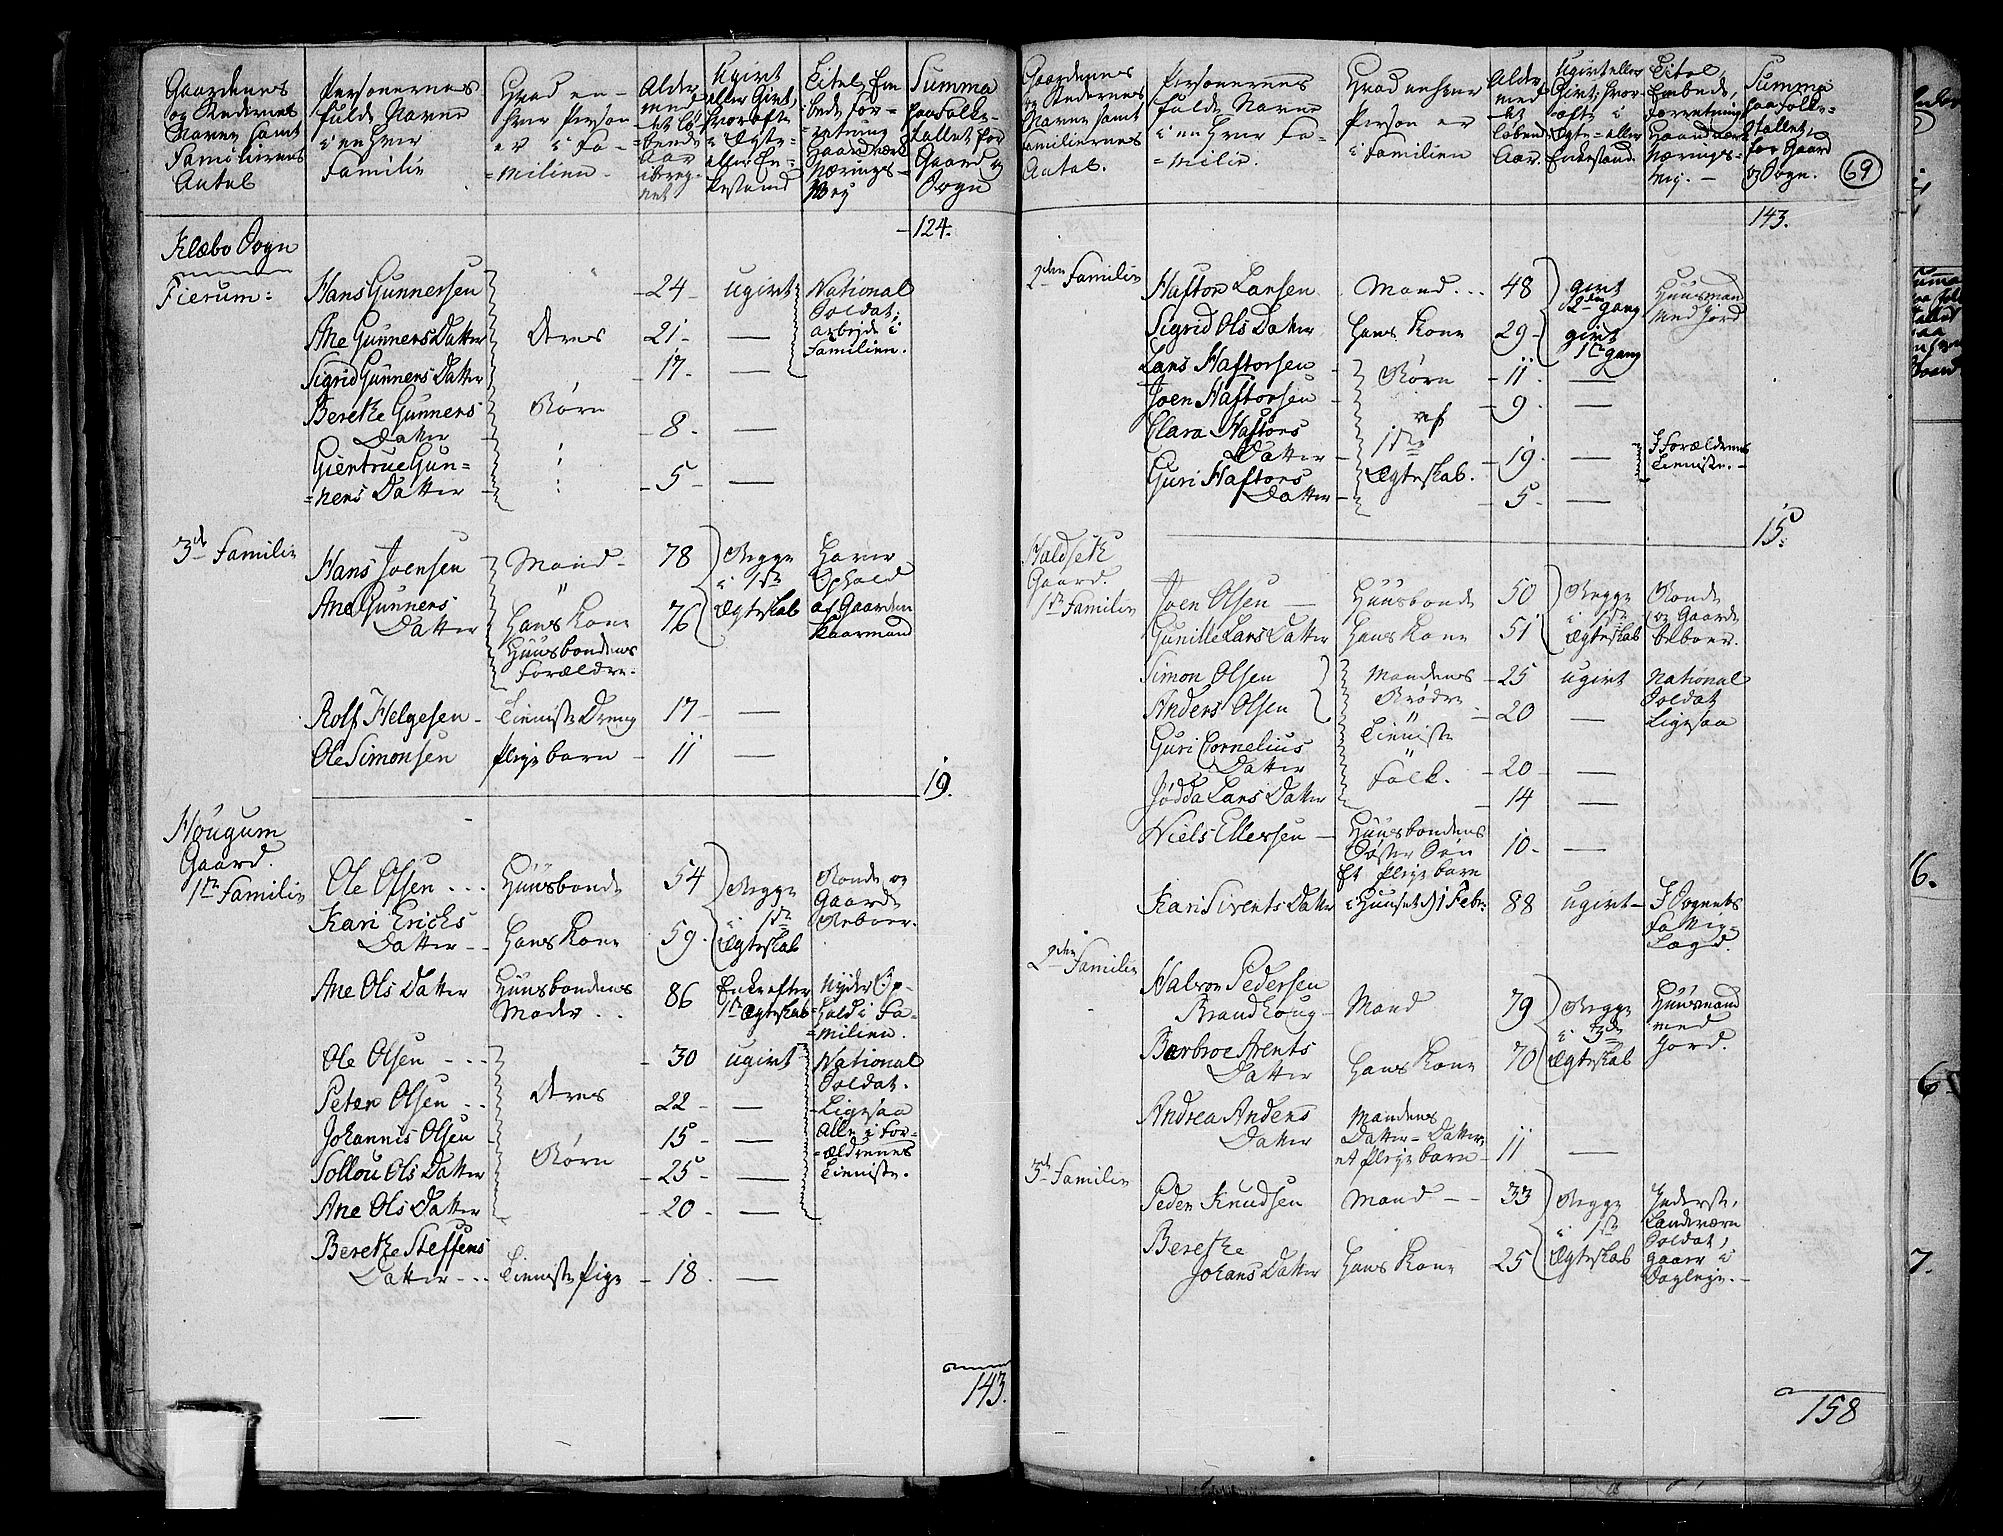 Gaardenes og Stedernes Navne samt Familiernes Antal
Personernes fulde Navne i enhver Familie
Hvad enhver Person er i Familien
Alder med det løbende Aar iberegnet
Ugivt eller Givt, hvor ofte i Ægte- eller Enkestand
Titel, Embede Forretning Haandværk Nærings-Vey
Summa paa Folketallet for Gaard og Sogn
124.
Klæbo Sogn
Fierum:
Hans Gunnersen 24 ugivt National Soldat; arbejde i Familien.
Ane Gunners Datter Deres 21 —
Sigrid Gunners Datter 17 —
Beretke Gunners Datter Børn 8 —
Gientrue Gunners Datter 5 —
3de Familie
Hans Joensen Mand 78 Begge i 1ste Ægteskab Haver Ophold af Gaarden Kaarmand
Ane Gunners Datter Hans Kone 76
Huusbondens Forældre.
Rolf Helgesen Tieniste Dreng 17 —
Ole Simonsen Pleyebarn 11 —
19.
Hougum Gaard.
1ste Familie
Ole Olsen Huusbonde 54 Begge i 1ste Ægteskab Bonde og Gaard Beboer.
Kari Ericks Datter Hans Kone 59
Ane Ols Datter Huusbondens Moder 86 Enke efter 1ste Ægteskab Nyder Ophold i Familien.
Ole Olsen 30 ugivt National Soldat.
Peter Olsen Deres 22 — Ligesaa
Johannis Olsen 15 — Alle i Forældrenes Tieniste.
Sollou Ols Datter Børn 25 —
Ane Ols Datter 20 —
Beretke Steffens Datter Tieniste Pige 18 —
143.
Gaardenes og Stedernes Navne samt Familiernes Antal.
Personernes fulde Navne i enhver Familie.
Hvad enhver Person er i Familien
Alder med det løbende Aar.
Ugivt eller Givt; hvor ofte i Ægte- eller Enkestand.
Titel, Embede, Forretning Haandværk Nærings-Vej.
Summa paa Folketallet, for Gaard og Sogn.
69
143.
2den Familie
Haftor Larsen Mand 48 givt 2den gang Huusmand med Jord
Sigrid Ols Datter Hans Kone 29 givt 1ste gang
Lars Haftorsen Børn 11 —
Joen Haftorsen af 9 —
Clara Haftors Datter 1ste 19 — I Forældrenes Tieniste.
Guri Haftors Datter Ægteskab. 5 —
15.
Haldsek Gaard.
1ste Familie
Joen Olsen Huusbonde 50 Begge i 1ste Ægteskab Bonde og Gaard beboer.
Gunille Lars Datter Hans Kone 51
Simon Olsen Mandens 25 ugivt National Soldat
Anders Olsen Brødre 20 — Ligesaa
Guri Cornelius Datter Tieniste 20 —
Jødda Lars Datter Folk. 14 —
Niels Ellersen Huusbondens Søster Søn Et Pleye barn 10 —
Kari Sivents Datter i Huuset d 1 Febr: 88 ugivt I Sognets Fattig-Lægd.
2den Familie
Halvor Pedersen Brandhoug Mand 79 Begge i 3de Ægteskab Huusmand med Jord.
Barbroe Arents Datter Hans Kone 70
Andrea Anders Datter Mandens Datter-Datter, et Pleye barn 11 —
3de Familie
Peder Knudsen Mand 33 Begge i 1ste Ægteskab Inderste, Landværn Soldat, gaaer i Dagleje.
Beretke Johans Datter Hans Kone 25
158
6.
7.